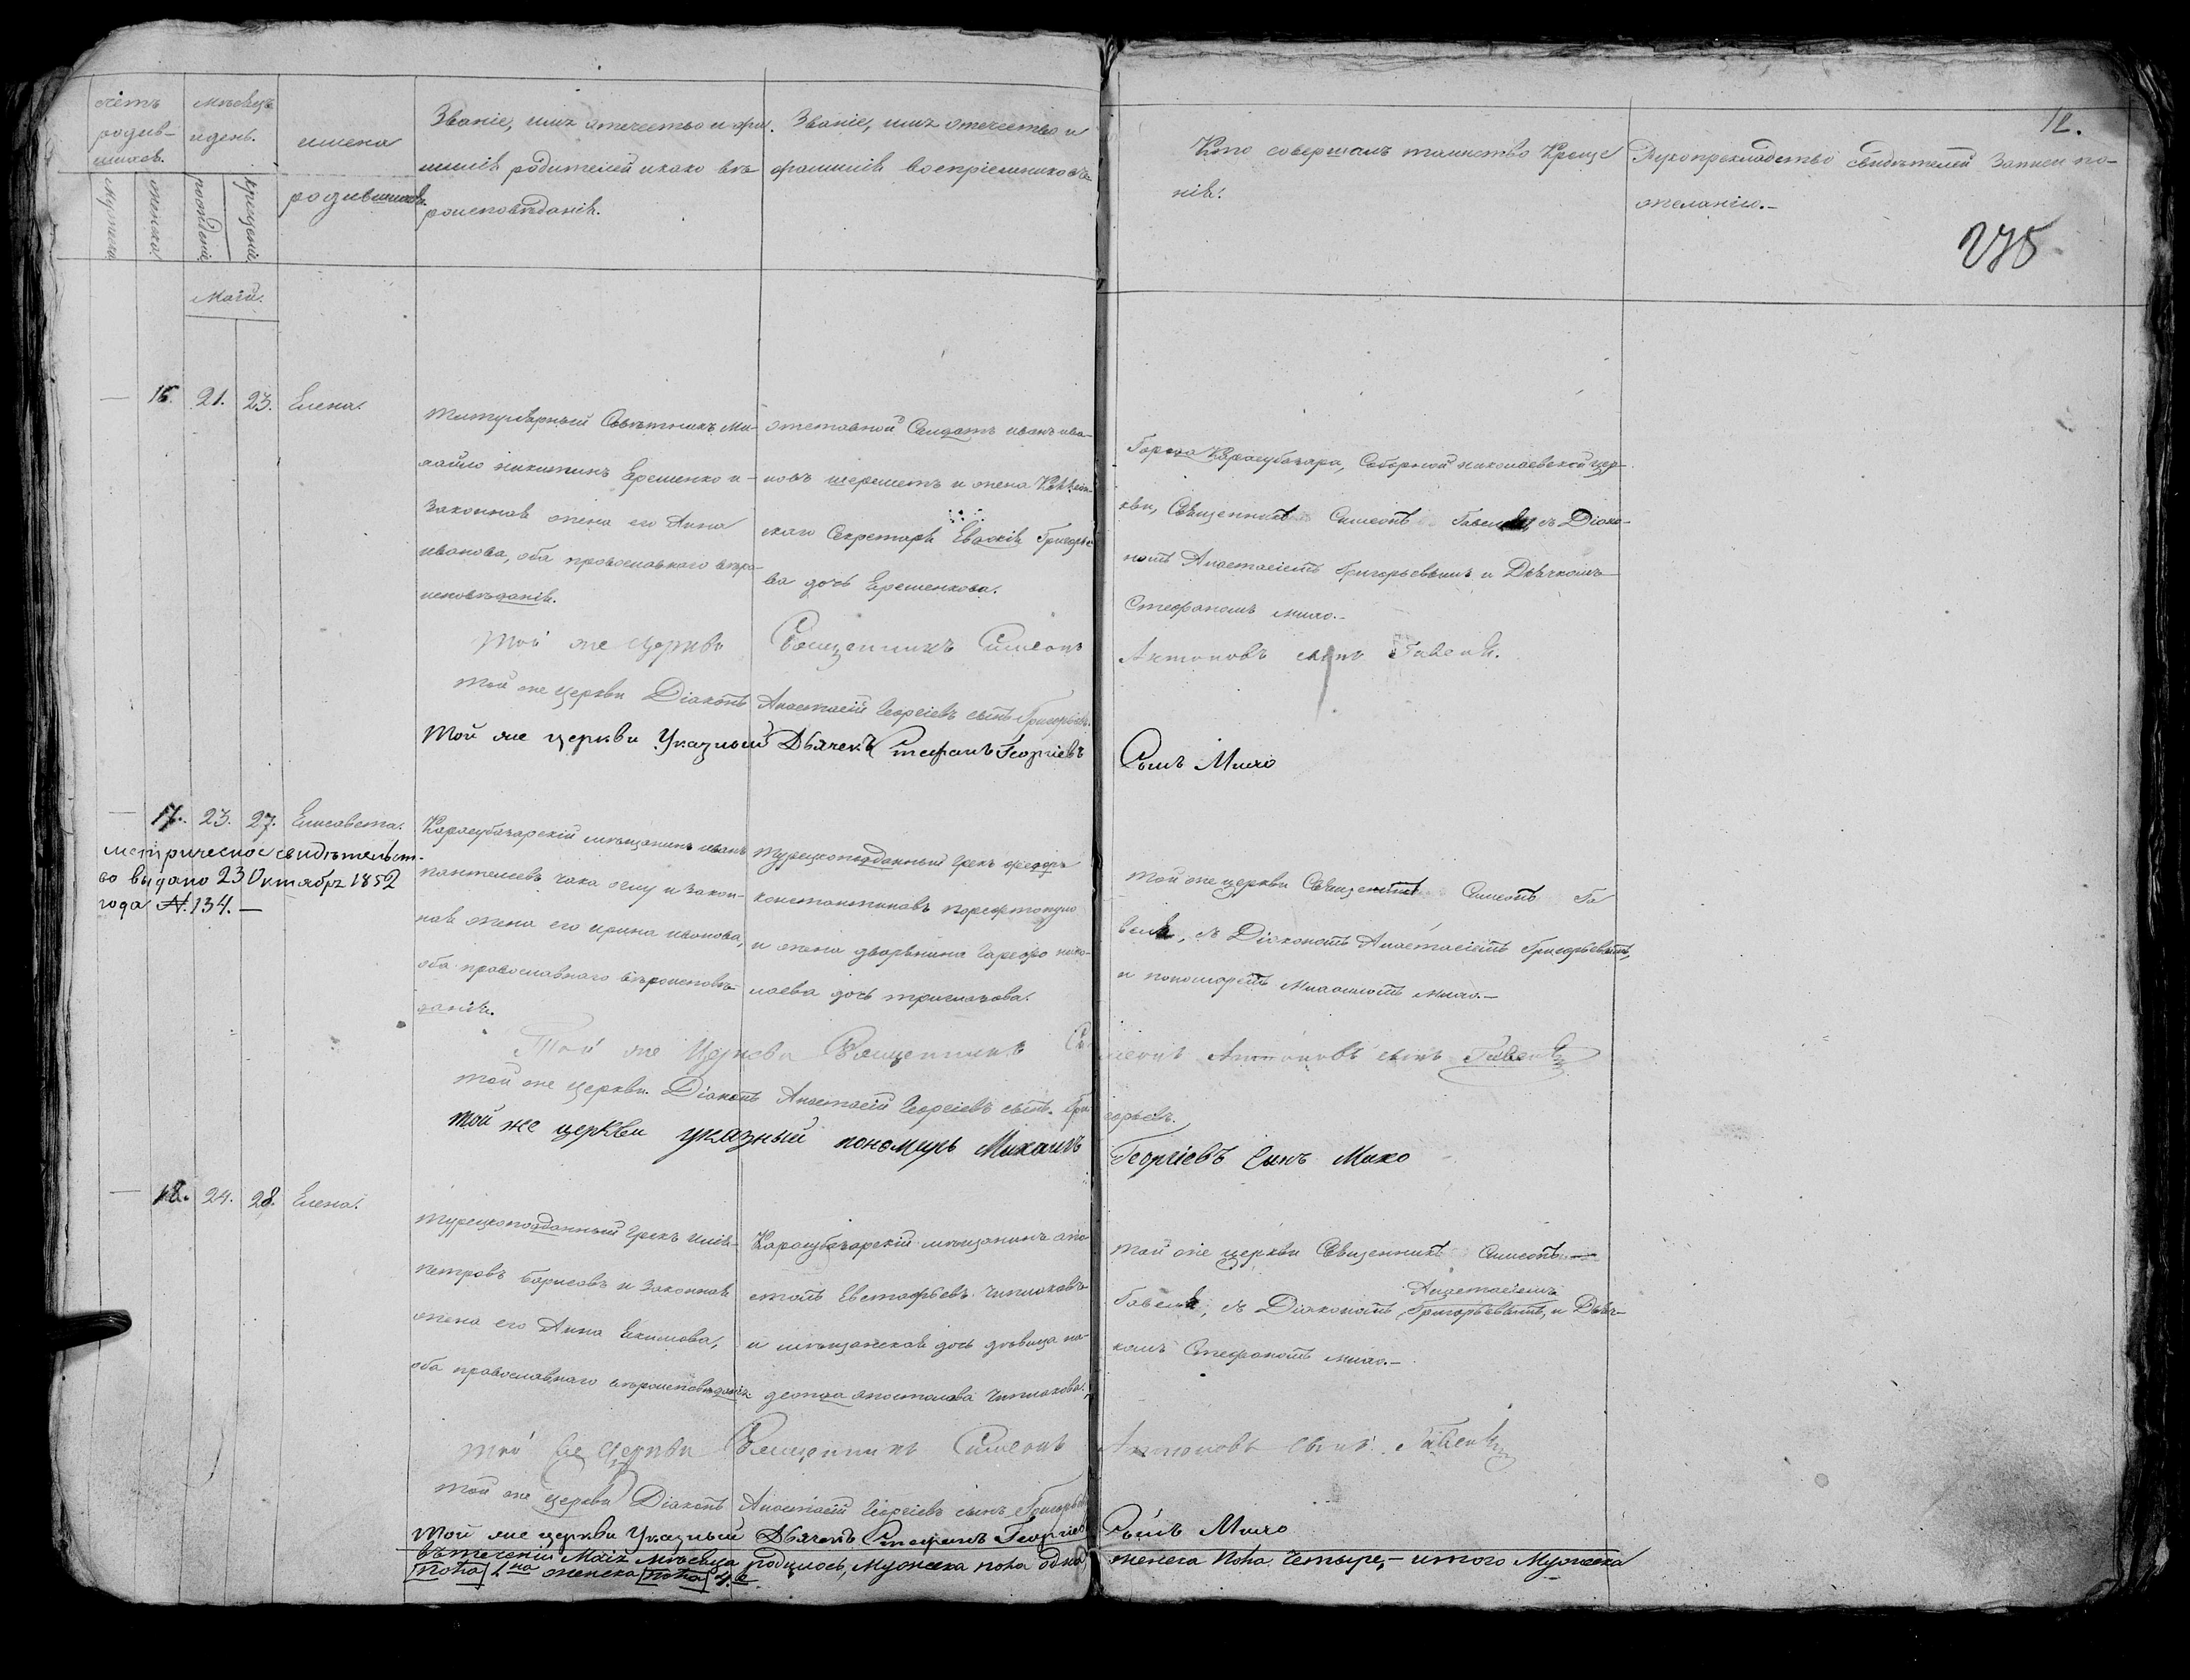 счетъ родив-шихся.
мѣсяцъ и день.
имена родившихся
Званіе, имя отечество и фа-
миліи родителей и како вѣ-
роисповѣданія.
Званіе, имя отечество и
фамилія воспріемниковъ
Кто совершалъ таинство Креще
нія.
Рукоприкладство свидѣтелей записи по-
желанію.–
12.
275
мужеска женска рожденія крещенія
Маія.
16. 21. 23. Елена.
Титулярный Совѣтникъ Ми-
хайло никитинъ Ерешенко и
законная жена его Анна
иванова, оба православнаго вѣро-
исповѣданія.
отставной Солдатъ иванъ ива-
новъ шереметъ и жена
скаго Секретаря Григорье
ва дочь Ерешенкова.
Города Карасубазара, Соборной николаевской цер-
кви, Священникъ Симеонъ съ Діако-
номъ Анастасіемъ Григорьевымъ и Дьячкомъ
Стефаномъ михо.–
Той же церкви Священникъ Симеонъ Антоновъ сынъ
той же церкви Діаконъ Анастасій Георгіевъ сынъ Григорьевъ.
Той же церкви Указный Дьячекъ Стефанъ Георгіевъ Сынъ Михо
17. 23. 27. Елисавета.
метрическое свидѣтельст-
во выдано 23 Октября 1852
года №. 134.–
Карасубазарскій мѣщанинъ иванъ
пантелеевъ чака оглу и закон-
ная жена его ирина иванова,
оба православнаго вѣроисповѣ-
данія.
турецкоподданный Грекъ федоръ
константиновъ
и жена дворянина нико-
лаева дочь
той же церкви Священникъ Симеонъ Га
съ Діакономъ Анастасіемъ Григорьевымъ,
и пономаремъ Михаиломъ михо.–
Той же Церкви Священникъ Симеонъ Антоновъ сынъ
той же церкви Діаконъ Анастасій Георгіевъ сынъ Григорьевъ.
той же церкви указный пономарь Михаилъ Георгіевъ Сынъ Михо
18. 24. 28. Елена.
турецкоподданный Грекъ илія
петровъ борисовъ и законная
жена его Анна Екимова,
оба православнаго вѣроисповѣданія
Карасубазарскій мѣщанинъ апо
столъ Евстафьевъ
и мѣщанская дочь дѣвица
апостолова
той же церкви Священникъ Симеонъ
съ Діакономъ Анастасіемъ Григорьевымъ, и Дьяч-
комъ Стефаномъ михо.–
Той же Церкви Священникъ Симеонъ Антоновъ сынъ
той же церкви Діаконъ Анастасій Георгіевъ сынъ Григорьевъ
Той же церкви Указный Дьячекъ Стефанъ Георгіевъ Сынъ Михо
Въ теченіи Маія мѣсяца родилось, мужеска пола одна, женска пола четыре,– итого мужеска
пола 1на женска пола 4.е